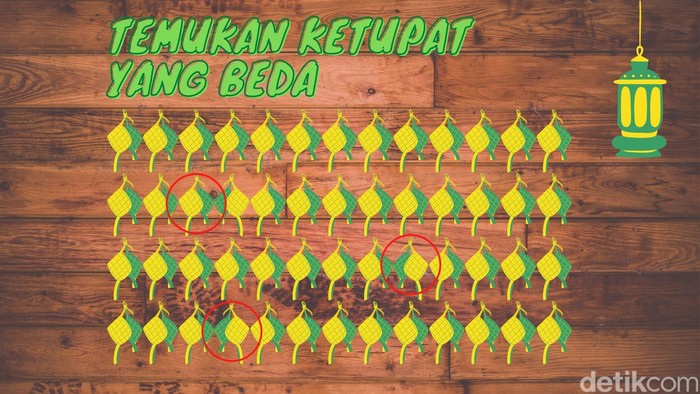 TEMUKAN KETUPAT
YANG BEDA
detikcom